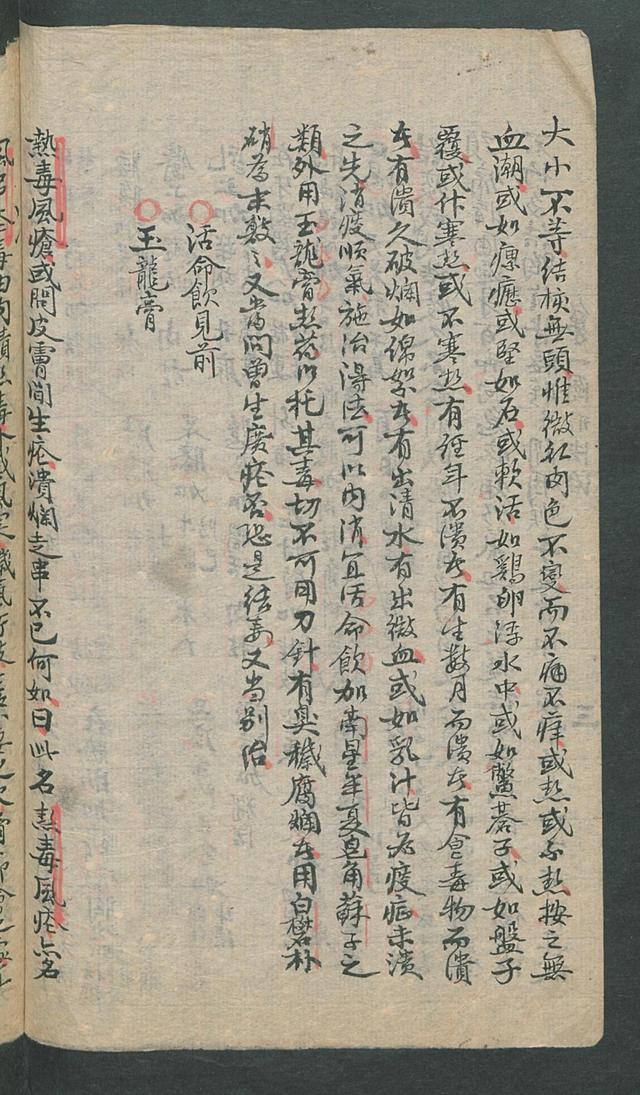 大小不等结核無頭惟微红肉色不變而不痛不痒或热或不热按之無
血潮或如瘰癧或堅如石或軟活如鷄卵浮水中或如鱉碁子或如盤子
覆或作寒热或不寒热有經年不潰者有生数月而潰者有食毒物而潰
者有潰久破爛如綿絮者有出清水有出微血或如乳汁皆為痰症未潰
之先消痰順氣施治得法可以内消宜活命飲加南星半夏皂角蘇子之
類外用玉龍膏热药以托其毒切不可用刀針有臭穢腐爛者用白礬朴
硝為末敷之又当問曾生廣疮否恐是结毒又当别治
活命飲見前
玉龍膏
熱毒風瘡或問皮膚間生疮潰爛走串不已何如曰此名熱毒風疮亦名